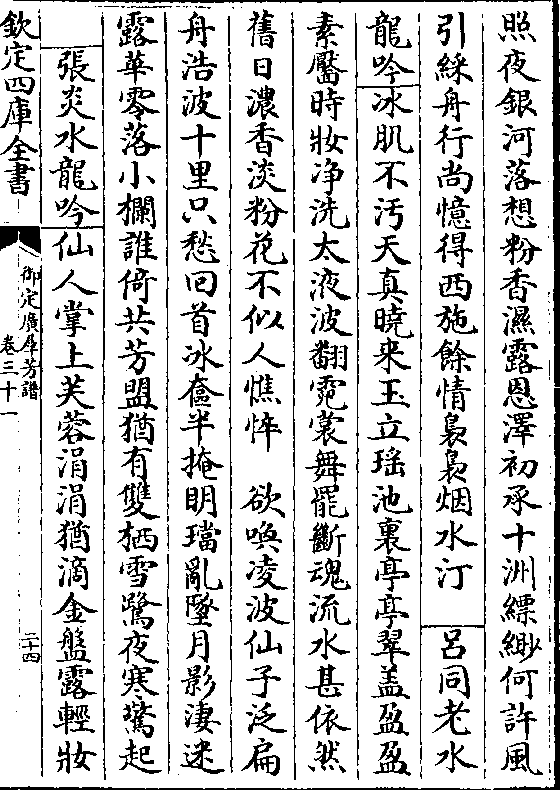 照夜銀河落想粉香濕露恩澤初承十洲縹緲何許風
引綵舟行尚憶得西施餘情裊裊烟水汀　呂同老水
龍吟氷肌不汚天真曉來玉立瑶池裏亭亭翠盖盈盈
素靨時妝净洗太液波翻霓裳舞罷斷魂流水甚依然
舊日濃香淡粉花不似人憔悴　欲喚凌波仙子泛扁
舟浩波十里只愁回首氷奩半掩明璫亂墜月影淒迷
露華零落小欄誰倚共芳盟猶有雙栖雪鷺夜寒驚起
張炎水龍吟仙人掌上芙蓉涓涓猶滴金盤露輕妝
欽定四庫全書
御定廣羣芳譜
卷三十一
二十四